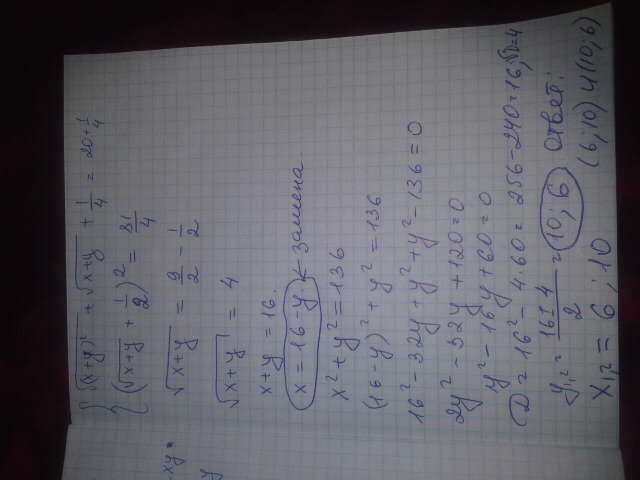 √(x+y)² + √x+y + 1/4 = 20+1/4
(√x+y + 1/2)² = 81/4
√x+y = 9/2 - 1/2
√x+y = 4
x+y = 16.
x = 16-y ← замена
x² + y² = 136
(16-y)² + y² = 136
16² - 32y + y² + y² - 136 = 0
2y² - 32y + 120 = 0
y² - 16y + 60 = 0
D = 16² - 4·60 = 256-240=16; √D=4
y₁,₂ = 16±4/2 = 10; 6 Ответ:
x₁,₂ = 6 ; 10 (6;10) и (10;6)
-xy
y